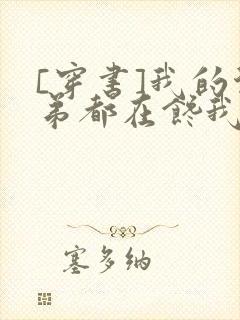 [穿书]我的
弟都在馋我
塞多纳